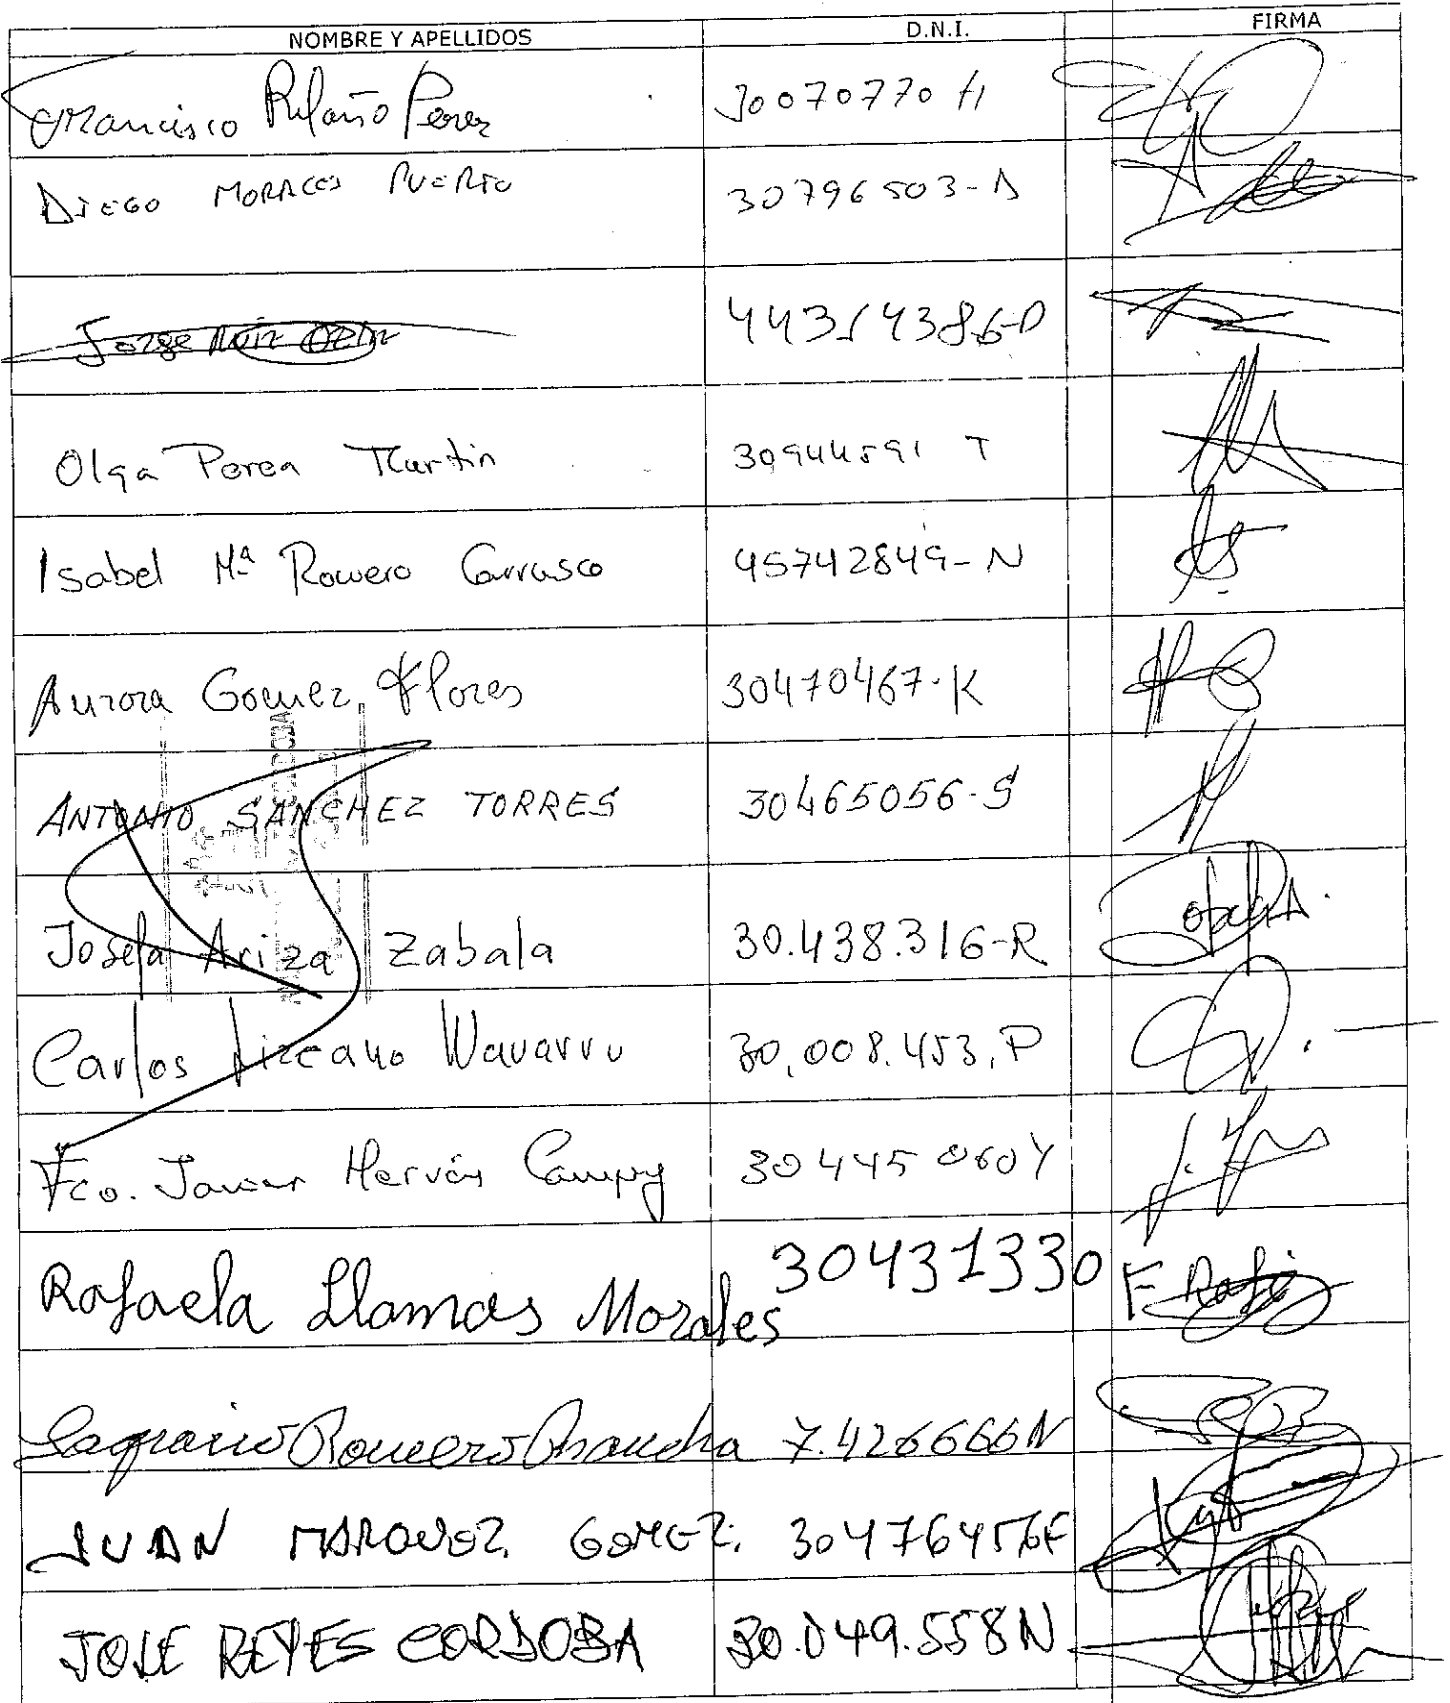 NOMBRE Y APELLIDOS D.N.I. FIRMA
Francisco Relaño Perez 30070770 H
DIEGO MORALES PUERTO 30796503-A
Jorge Ruiz 44354386-D
Olga Perea Martin 30944591 T
Isabel Mª Romero Carrasco 45742849-N
Aurora Gomez Flores 30470467-K
ANTONIO SANCHEZ TORRES 30465056-S
Josefa Ariza Zabala 30.438.316-R
Carlos Lizcano Navarro 30,008.453,P
Fco. Javier Hervás 30445060Y
Rafaela Llamas Morales 30431330 F Rafi
Sagrario Romero 7.426666N
JUAN MARQUEZ GOMEZ. 30476456F
JOSE REYES CORDOBA 30.049.558N